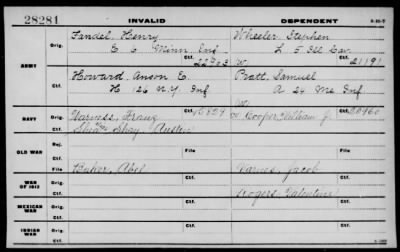 28281 INVALID DEPENDENT
ARMY
Orig. Fandel, Henry Wheeler, Stephen
E 6 Minn Inf L 5 Ill Cav.
Ctf. 22903 W. 21191
Orig. Howard, Anson E. Pratt, Samuel
H 126 N.Y. Inf A 24 Me Inf
Ctf. W.
NAVY
Orig. Ctf. 15839 Cooper, William J. Ctf. 20960
Shay, Austin
OLD WAR
Rej.
File
Ctf.
WAR OF 1812
Baker, Abel Varnes, Jacob
Ctf.
Rogers, Valentine
MEXICAN WAR
Orig. Ctf.
INDIAN WAR
Orig. Ctf.